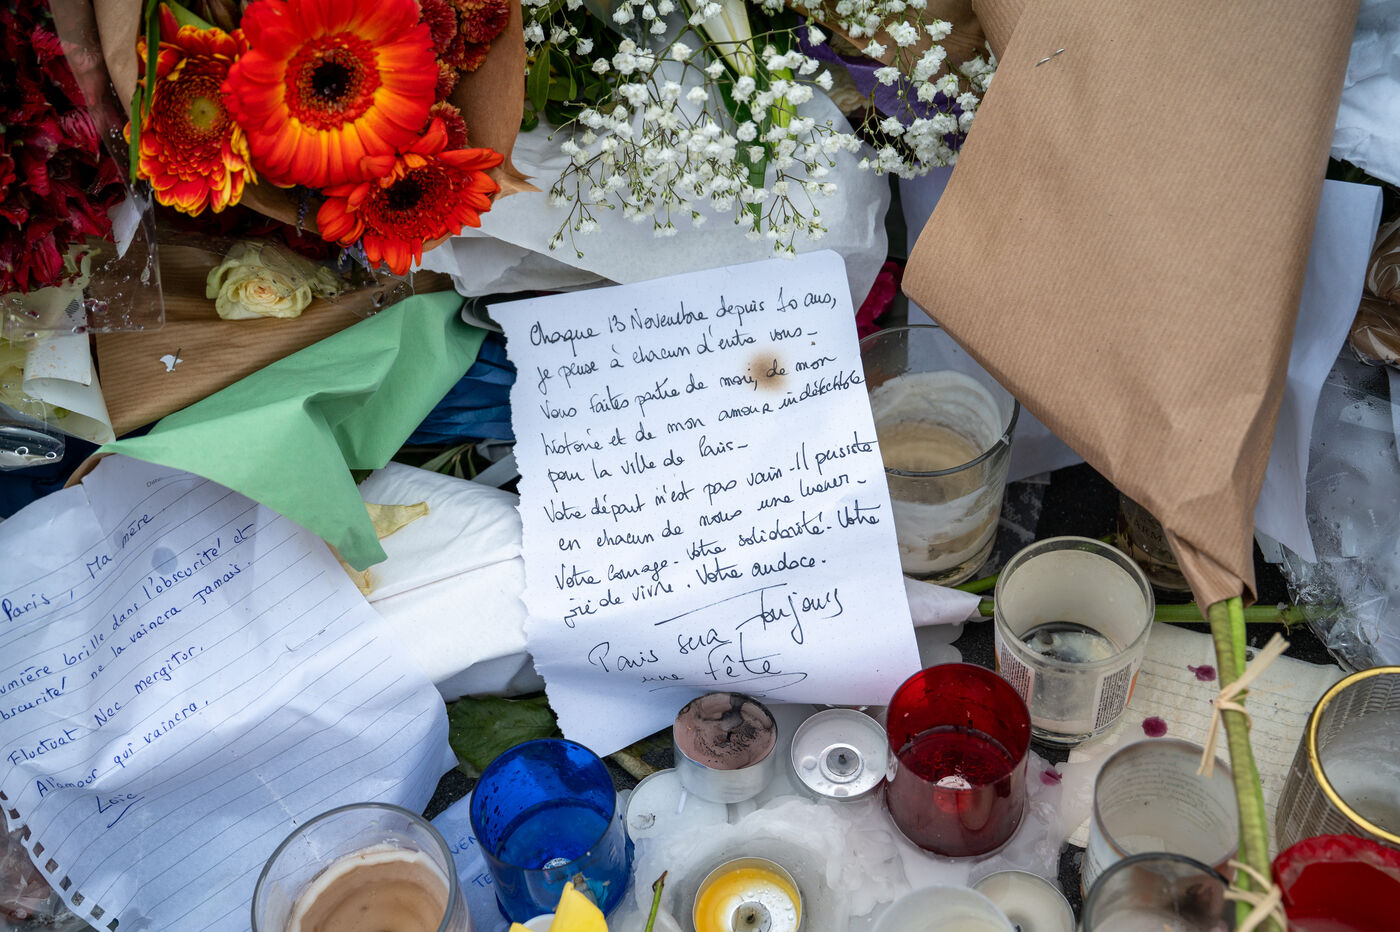 Chaque 13 Novembre depuis 10 ans,
je pense à chacun d'entre vous-
Vous faites partie de moi, de mon
histoire et de mon amour indéfectible
pour la ville de Paris-
Votre départ n'est pas vain - Il persiste
en chacun de nous une lueur-
Votre courage - Votre solidarité - Votre
joie de vivre. Votre audace.
Paris sera toujours
une fête
Date
Paris, Ma mère.
lumière brille dans l'obscurité et
obscurité ne la vaincra jamais.
Fluctuat Nec mergitur.
A l'amour qui vaincra.
Loïc